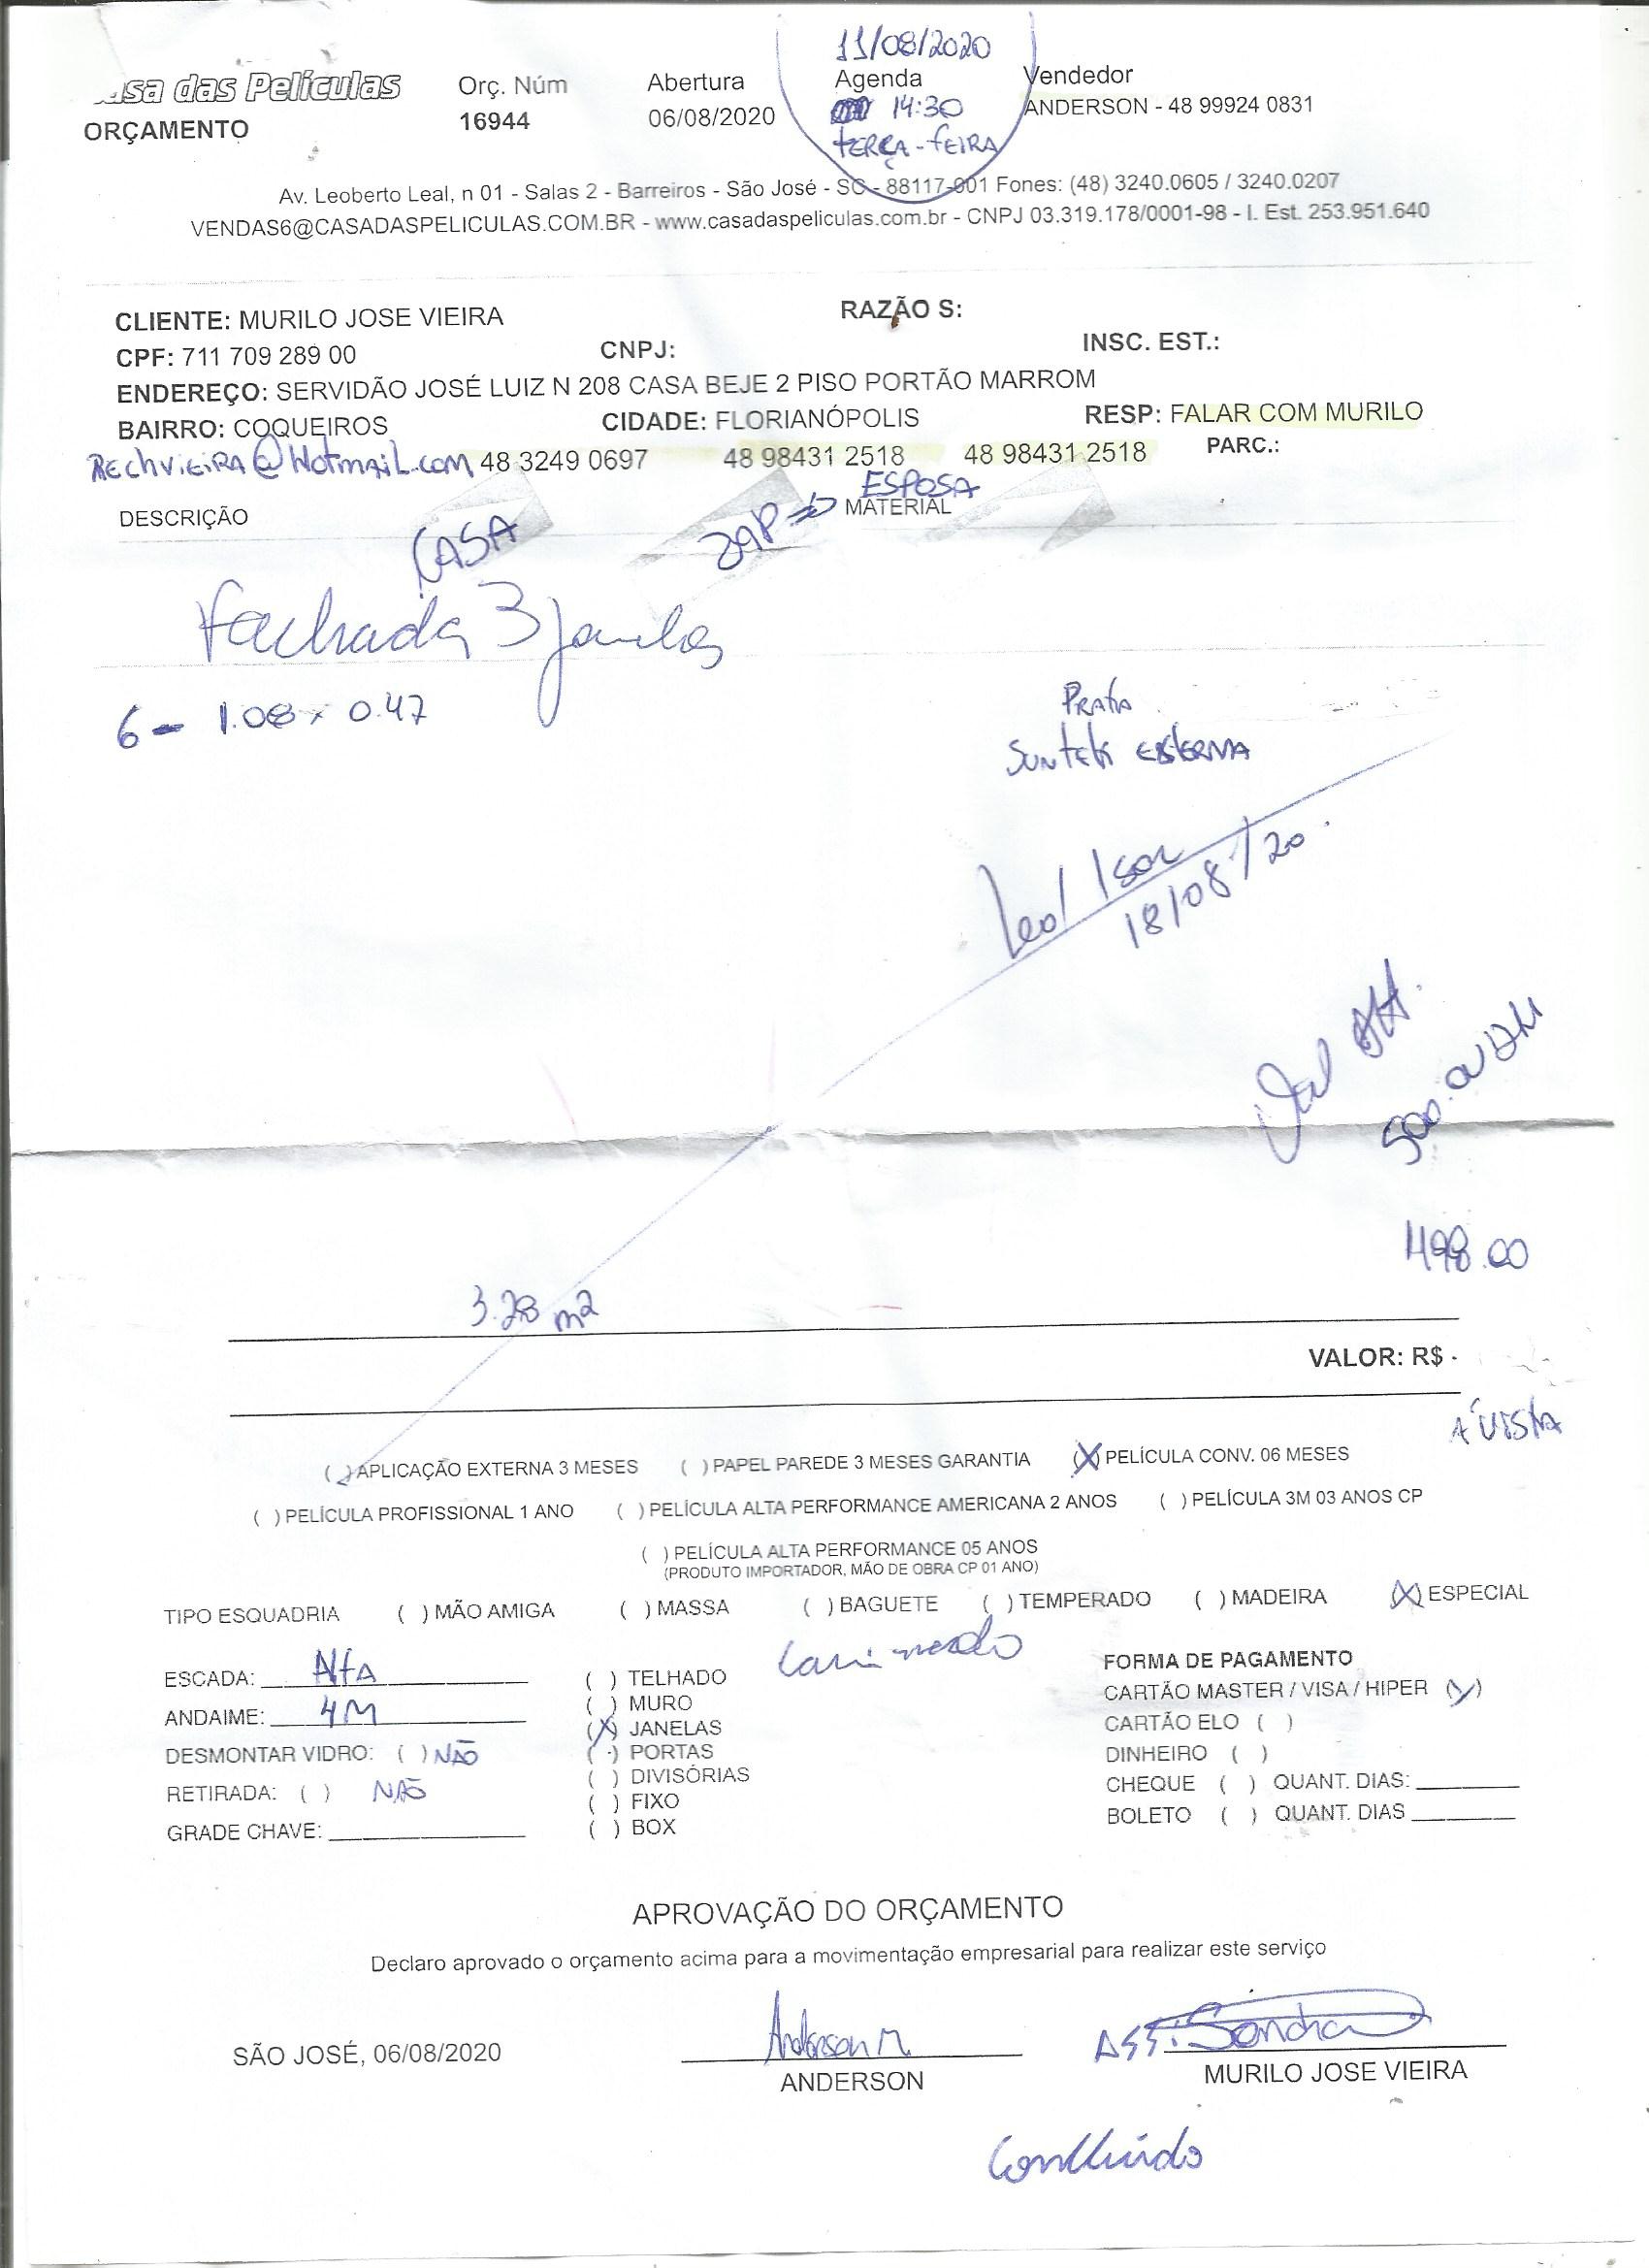 11/08/2020
asa das Películas Orç. Núm Abertura Agenda Vendedor
ORÇAMENTO 16944 06/08/2020 14:30 ANDERSON - 48 99924 0831
TERÇA-FEIRA
Av. Leoberto Leal, n 01 - Salas 2 - Barreiros - São José - SC - 88117-001 Fones: (48) 3240.0605 / 3240.0207
VENDAS6@CASADASPELICULAS.COM.BR - www.casadaspeliculas.com.br - CNPJ 03.319.178/0001-98 - I. Est. 253.951.640
CLIENTE: MURILO JOSE VIEIRA RAZÃO S:
CPF: 711 709 289 00 CNPJ: INSC. EST.:
ENDEREÇO: SERVIDÃO JOSÉ LUIZ N 208 CASA BEJE 2 PISO PORTÃO MARROM
BAIRRO: COQUEIROS CIDADE: FLORIANÓPOLIS RESP: FALAR COM MURILO
RECHVIEIRA@HOTMAIL.COM 48 3249 0697 48 98431 2518 48 98431 2518 PARC.:
ESPOSA
DESCRIÇÃO CASA ZAP => MATERIAL
Fachada 3 janelas
6 - 1.08 x 0.47
PRATA
SUNTEK EXTERNA
Leo / Isac
18/08/20.
498.00
3.28 m2
VALOR: R$ -
A VISTA
( ) APLICAÇÃO EXTERNA 3 MESES ( ) PAPEL PAREDE 3 MESES GARANTIA (X) PELÍCULA CONV. 06 MESES
( ) PELÍCULA PROFISSIONAL 1 ANO ( ) PELÍCULA ALTA PERFORMANCE AMERICANA 2 ANOS ( ) PELÍCULA 3M 03 ANOS CP
( ) PELÍCULA ALTA PERFORMANCE 05 ANOS
(PRODUTO IMPORTADOR, MÃO DE OBRA CP 01 ANO)
TIPO ESQUADRIA ( ) MÃO AMIGA ( ) MASSA ( ) BAGUETE ( ) TEMPERADO ( ) MADEIRA (X) ESPECIAL
ESCADA: ALTA
ANDAIME: 4M
DESMONTAR VIDRO: ( ) NÃO
RETIRADA: ( ) NÃO
GRADE CHAVE:
( ) TELHADO
( ) MURO
(X) JANELAS
( ) PORTAS
( ) DIVISÓRIAS
( ) FIXO
( ) BOX
FORMA DE PAGAMENTO
CARTÃO MASTER / VISA / HIPER (X)
CARTÃO ELO ( )
DINHEIRO ( )
CHEQUE ( ) QUANT. DIAS:
BOLETO ( ) QUANT. DIAS
APROVAÇÃO DO ORÇAMENTO
Declaro aprovado o orçamento acima para a movimentação empresarial para realizar este serviço
Anderson M. ASS: Sandra
SÃO JOSÉ, 06/08/2020 ANDERSON MURILO JOSE VIEIRA
Concluído